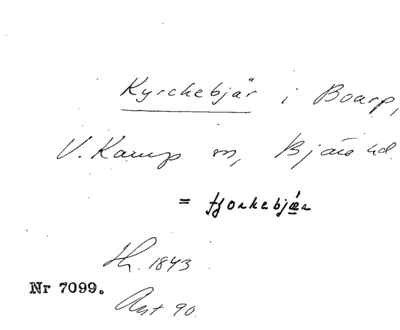 Kyrckebjär i Boarp,
V. Karup sn, Bjäre hd.
= tjorkebjær
Th. 1843
Nr 7099.
Ant 90.